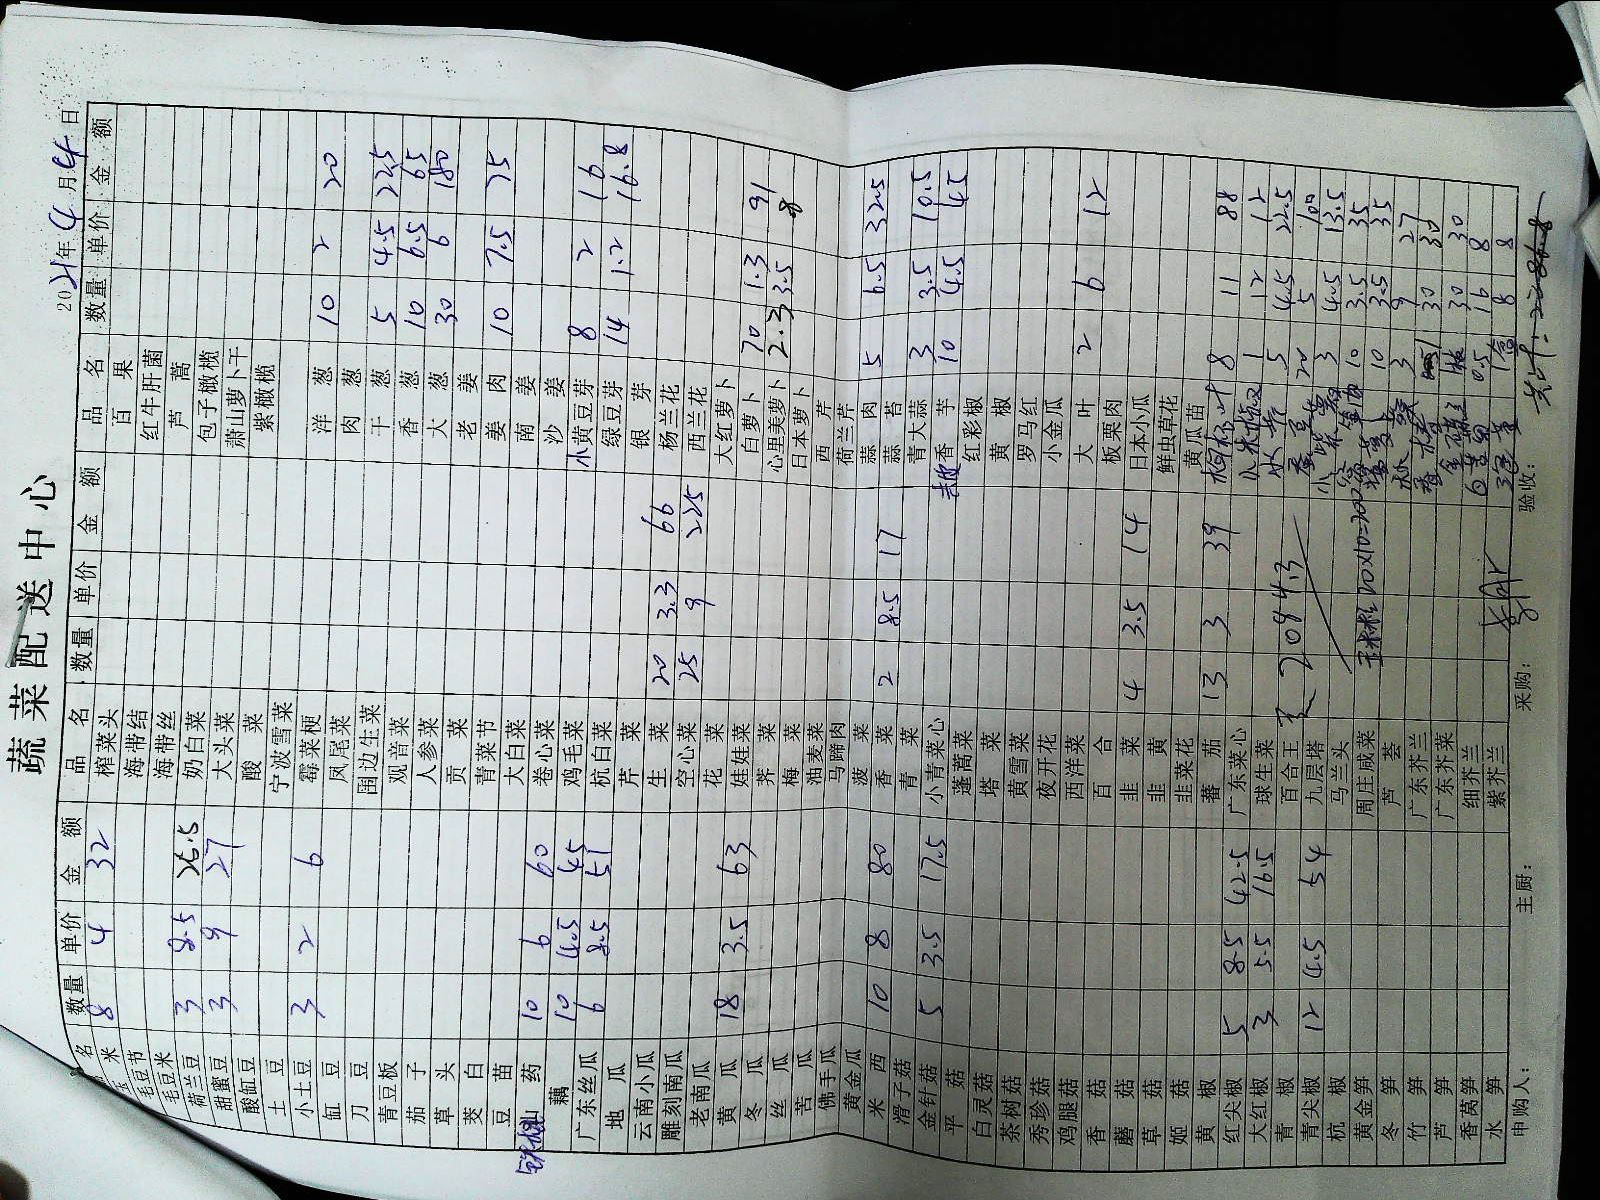 蔬菜配送中心
2021年4月4日
品名 数量 单价 金额 品名 数量 单价 金额 品名 数量 单价 金额
玉米 8 4 32 榨菜头 百果
毛豆节 海带结 红牛肝菌
毛豆米 海带丝 芦蒿
荷兰豆 3 8.5 25.5 奶白菜 包子橄榄
甜蜜豆 3 9 27 大头菜 萧山萝卜干
酸缸豆 酸菜 紫橄榄
土豆 宁波雪菜
小土豆 3 2 6 霉菜梗 洋葱 10 2 20
缸豆 凤尾菜 肉葱
刀豆 围边生菜 干葱 5 4.5 22.5
青豆板 观音菜 香葱 10 6.5 65
茄子 人参菜 大葱 30 6 180
草头 贡菜 老姜
茭白 青菜节 姜肉 10 7.5 75
豆苗 大白菜 南姜
铁棍山药 10 6 60 卷心菜 沙姜
藕 10 4.5 45 鸡毛菜 小黄豆芽 8 2 16
广东丝瓜 6 8.5 51 杭白菜 绿豆芽 14 1.2 16.8
地瓜 芹菜 银芽
云南小瓜 生菜 20 3.3 66 杨兰花
雕刻南瓜 空心菜 25 9 225 西兰花
老南瓜 花菜 大红萝卜
黄瓜 18 3.5 63 娃娃菜 白萝卜 70 1.3 91
冬瓜 荠菜 心里美萝卜 2.3 3.5 8
丝瓜 梅菜 日本萝卜
苦瓜 油麦菜 西芹
佛手瓜 马蹄肉 荷兰芹
黄金瓜 菠菜 蒜肉 5 6.5 32.5
米西 10 8 80 香菜 2 8.5 17 蒜苔
滑子菇 青菜 青大蒜 3 3.5 10.5
金针菇 5 3.5 17.5 小青菜心 去皮香芋 10 4.5 45
平菇 蓬蒿菜 红彩椒
白灵菇 塔菜 黄椒
茶树菇 黄雪菜 罗马红
秀珍菇 夜开花 小金瓜
鸡腿菇 西洋菜 大叶 2 6 12
香菇 百合 板栗肉
蘑菇 韭菜 4 3.5 14 日本小瓜
草菇 韭黄 鲜虫草花
姬菇 韭菜花 黄瓜苗
黄椒 蕃茄 13 3 39 8 11 88
红尖椒 5 8.5 42.5 广东菜心 小米椒 1 12 12
大红椒 3 5.5 16.5 球生菜 5 4.5 22.5
青椒 百合王 2094.3 蚕豆 20 5 100
青尖椒 12 4.5 54 九层塔 3 4.5 13.5
杭椒 马兰头 10 3.5 35
黄金笋 周庄咸菜 玉米粒 20×10=200 10 3.5 35
冬笋 芦荟 3 9 27
竹笋 广东芥兰 30 30
芦笋 广东芥菜 30 30
香莴笋 细芥兰 0.5 16 8
水笋 紫芥兰 1盒 8 8
申购人: 主厨: 采购: 验收: 共计: 2286.8